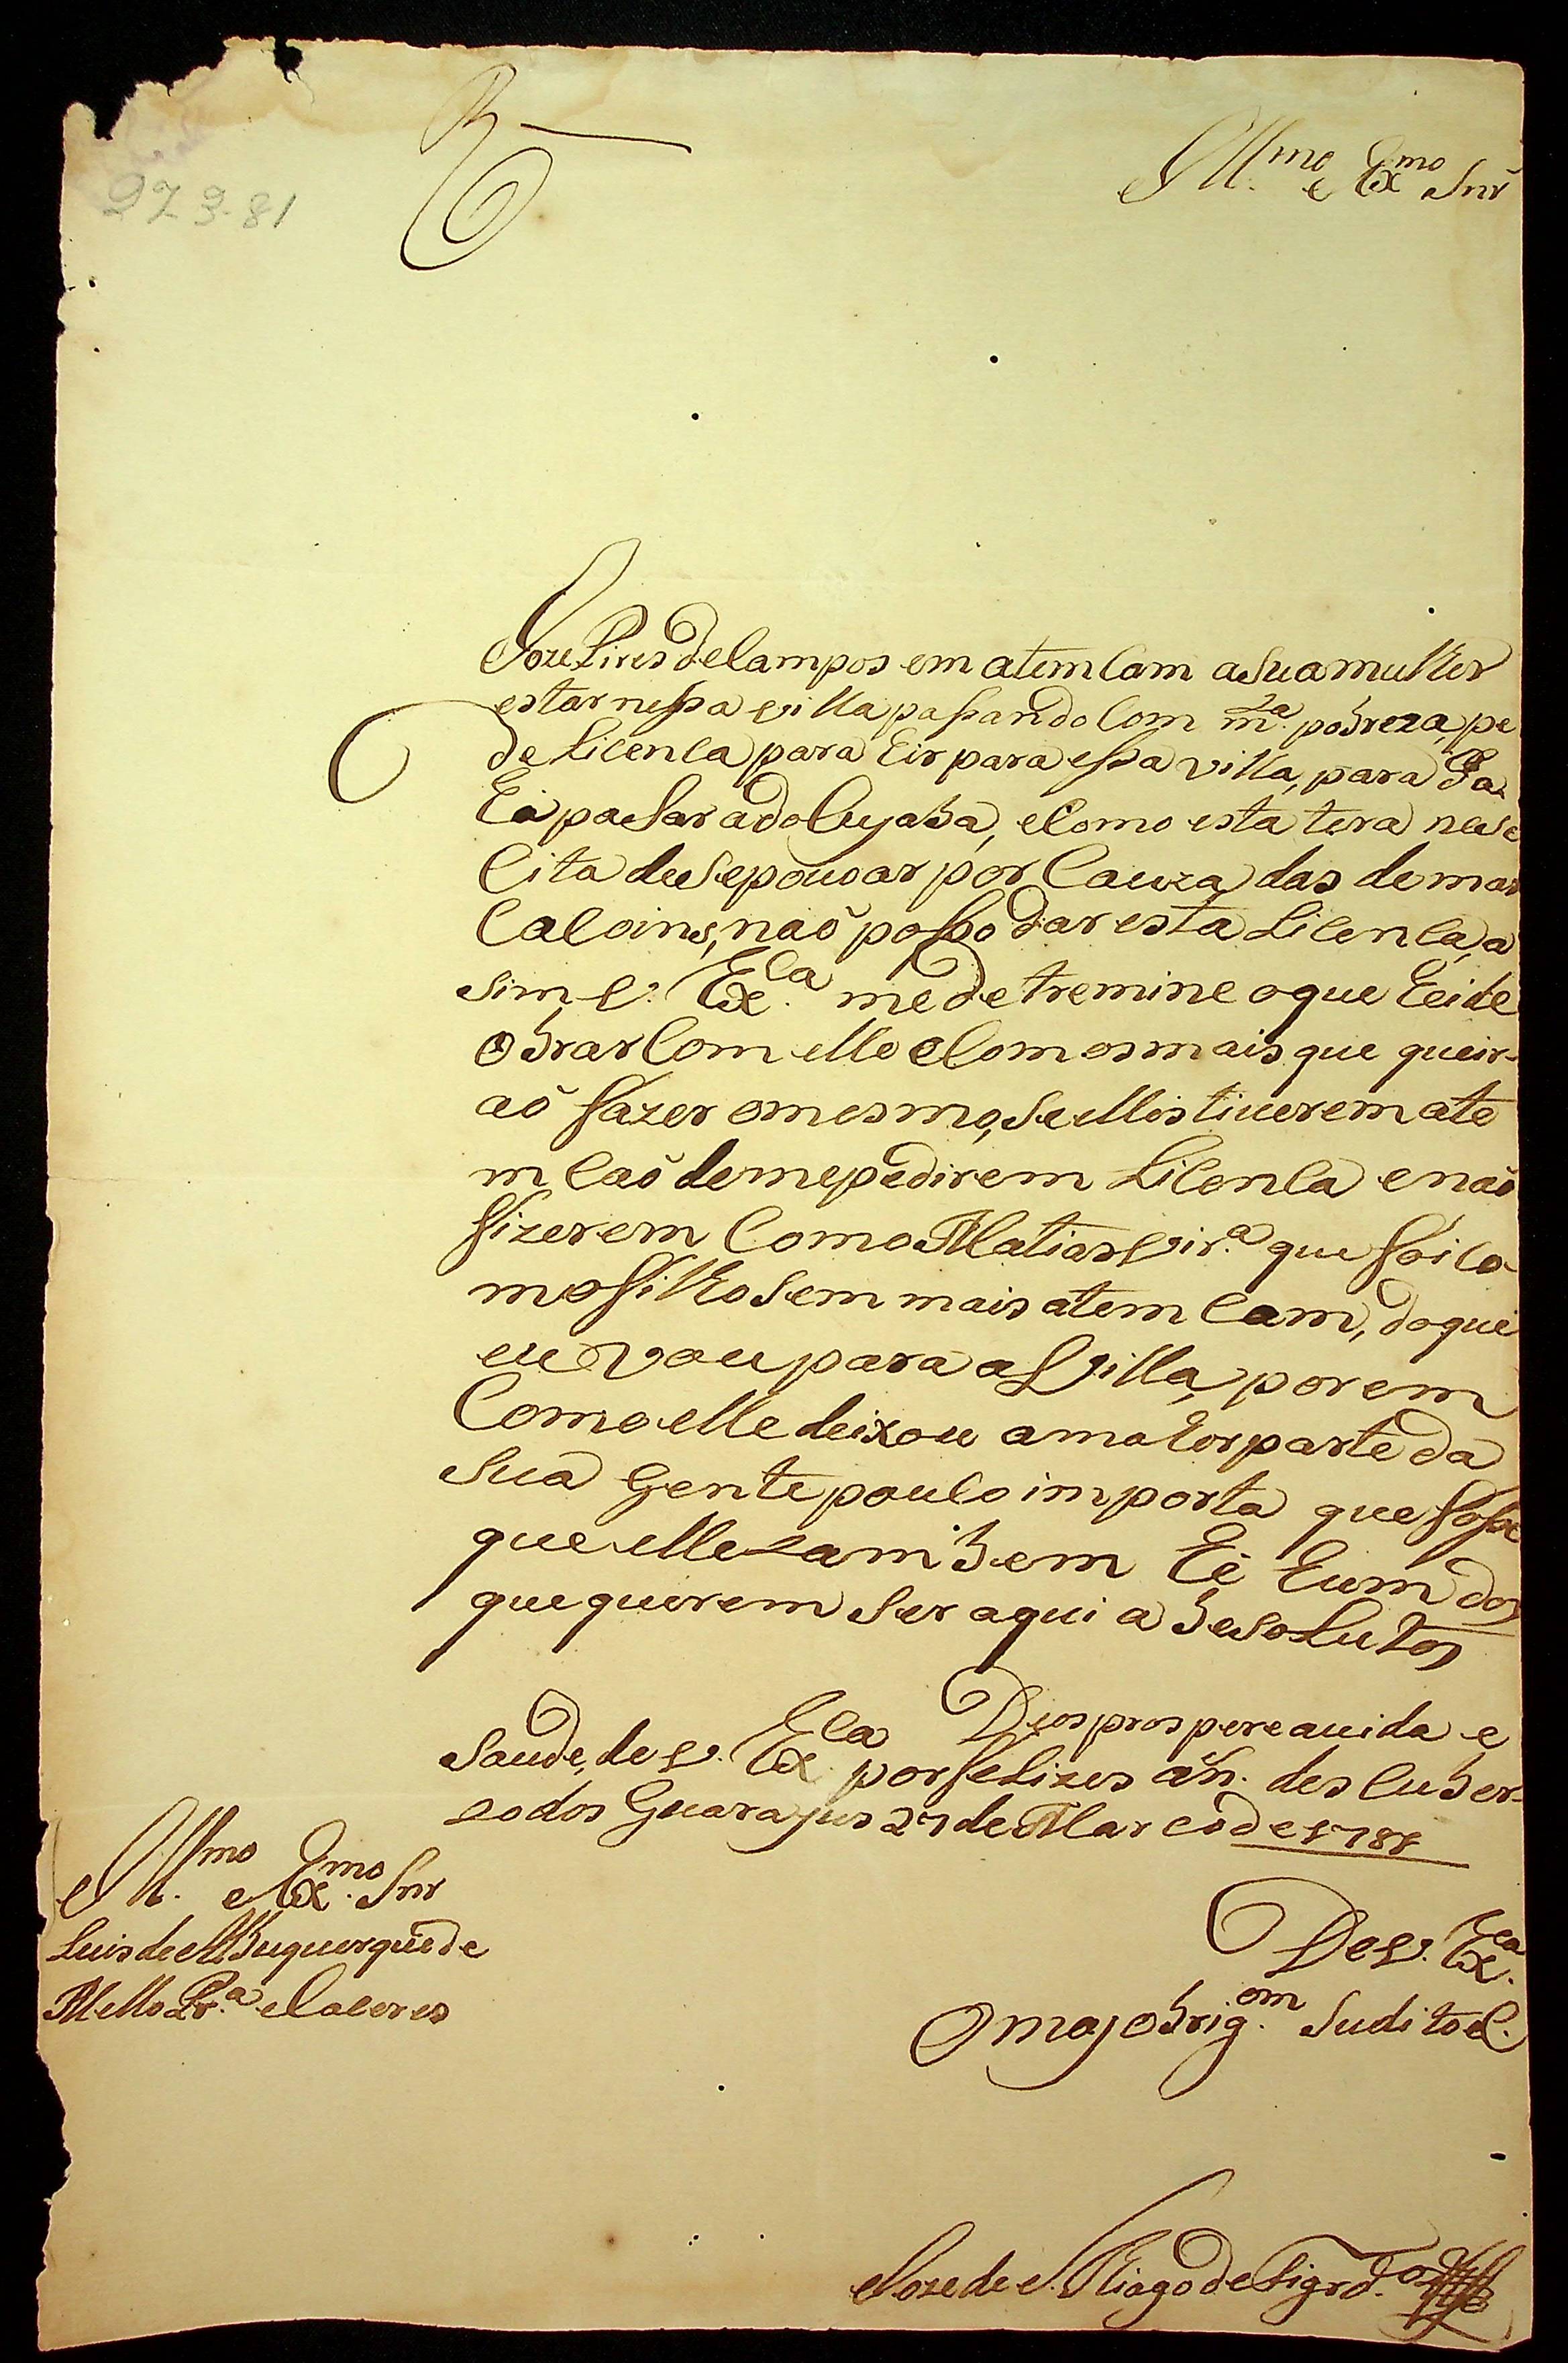 R
27 3-81
Ill.mo e Ex.mo Snr̃
Joze Pires de Campos em atemcam a sua mulher
estar nessa villa passando com m.ta pobreza, pe
de Licenca para hir para essa villa, para da
hi a pasar ado Cuyaba, e como esta tera nese
cita de se povoar por cauza das demar
cacoins, naõ posso dar esta Licenca, a
sim, V. Ex.ca me detremine o que hei de
obrar com elle e com os mais que queir-
aõ fazer o mesmo, se elles tiuerem ate
mcaõ de me pedirem Licenca e naõ
fizerem como Matias Vir.a que foi co
mo filho sem mais atemcam, do que
eu vou para a Villa, porem
Como elle deixou a maior parte da
sua Gente pouco importa que fose
que elle tambem hé hum dos
que querem ser aqui abesolutos
Deos prospere a uida e
saude, de V. Ex.ca por felizes an̅. descuber-
to dos Guarajus 27 de Marco de 1781
De V. Ex.ca
O mais obrig.om Sudito C.
Joze de S. Thiago de Figrd.o
Ill.mo e Ex.mo Snr
Luis de Albuquerque de
Mello Pr.a e Caceres